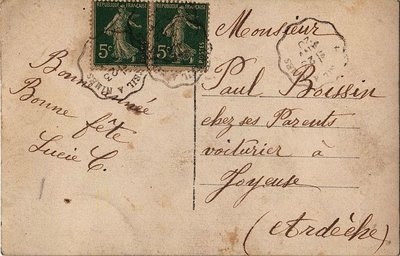 RÉPUBLIQUE FRANÇAISE
5c
RÉPUBLIQUE FRANÇAISE
5c
A NIMES
Bonne année
Bonne fête
Lucie C.
Monsieur
Paul Boissin
chez ses Parents
voiturier à
Joyeuse
(Ardèche)